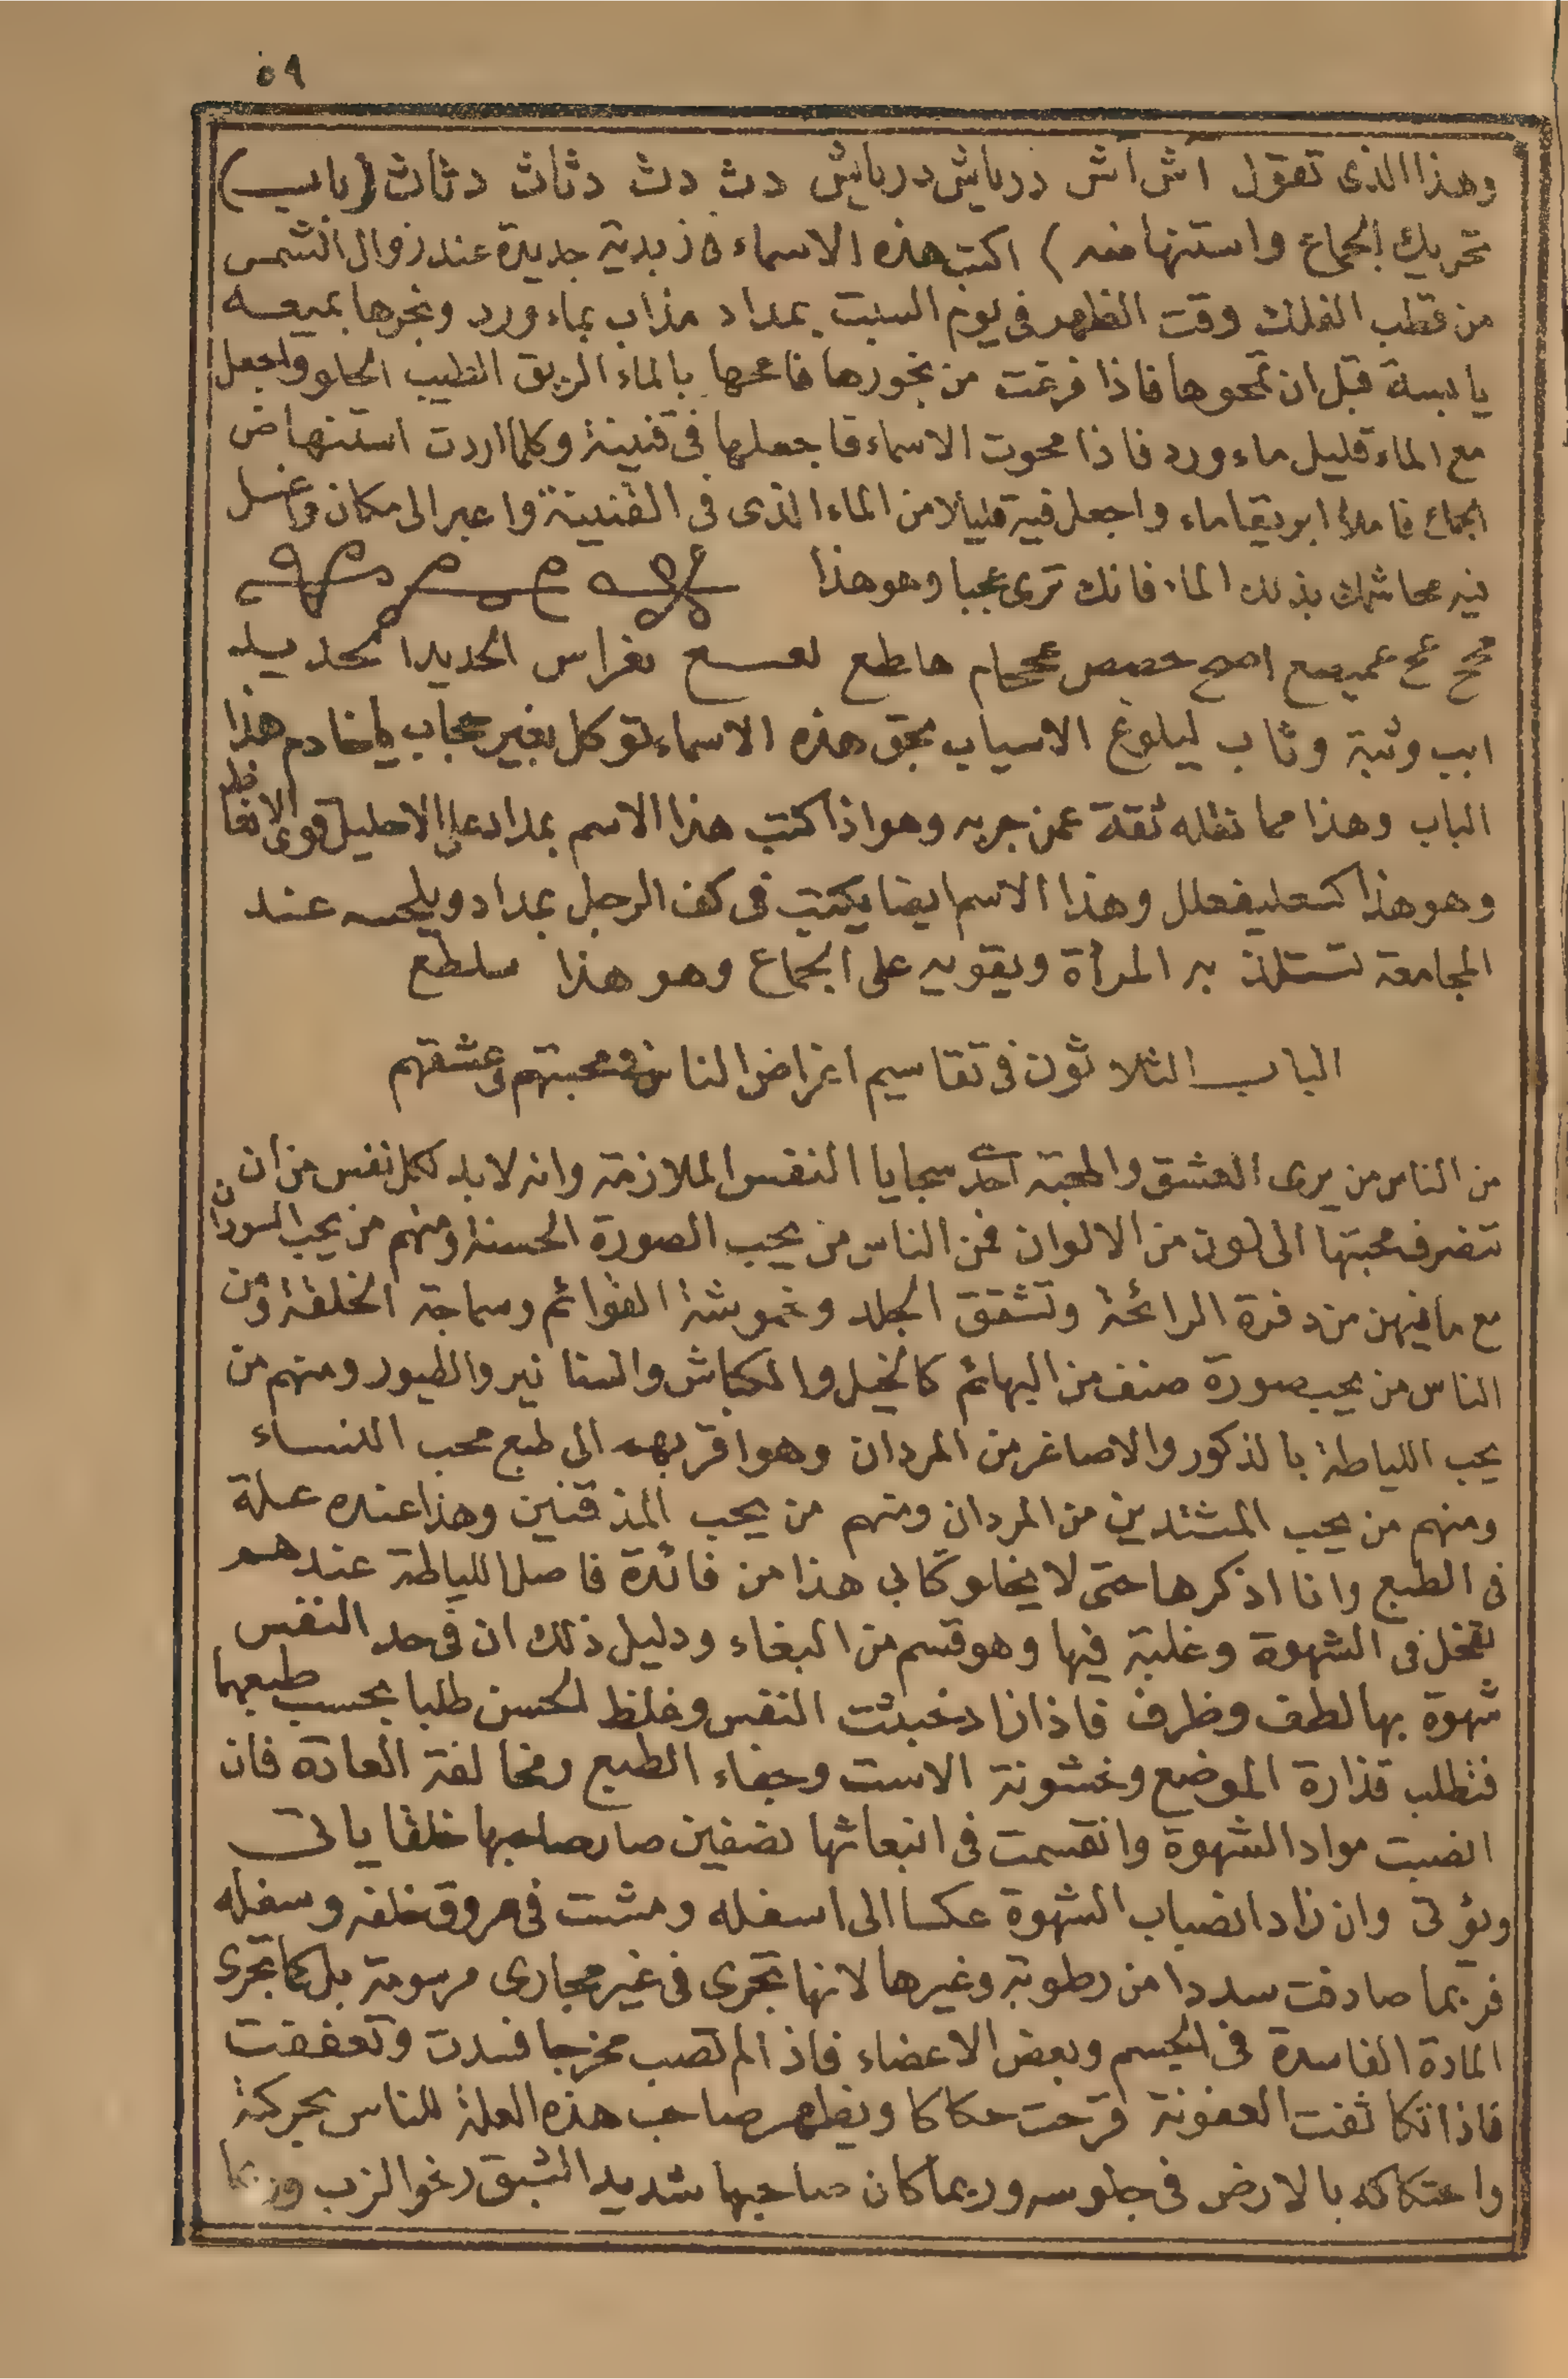 ٥٩
وهذا الذى تقول آش آش درباش درباش دث دث دثاث دثاث (باب)
تحريك الجماع واستنهاضه) اكتب هذه الاسماء فى زبدية جديدة عند زوال الشمس
من قطب الفلك وقت الظهر فى يوم السبت بمداد مذاب بماء ورد وبخرها بميعه
يابسة قبل ان تمحوها فاذا فرغت من بخورها فامحها بالماء الريق الطيب الحلو واجعل
مع الماء قليل ماء ورد فاذا محوت الاسماء فاجعلها فى قنينة وكلما اردت استنهاض
الجماع فاملأ ابريقا ماء واجعل فيه قليلا من الماء الذى فى القنينة واعبر الى مكان واغسل
فيه محاشمك بذلك الماء فانك ترى عجبا وهو هذا
هاطع الحديد
ابب وثبة وثاب ليلوغ الاسياب بحق هذه الاسماء توكل بغير حجاب ياخادم هذا
الباب وهذا مما نقله ثقة عمن جربه وهو اذا كتب هذا الاسم بمداد على الاحليل قوى الانعاظ
وهو هذا كىعليفعلل وهذا الاسم ايضا يكتب فى كف الرجل بمداد ويلحسه عند
المجامعة تستلذ به المرأة ويقويه على الجماع وهو هذا سلطع
الباب الثلاثون فى تقاسيم اغراض الناس فى محبتهم وعشقهم
من الناس من يرى العشق والمحبة احد سجايا النفس الملازمة وانه لابد لكل نفس من ان
تتصرف محبتها الى لون من الالوان فمن الناس من يحب الصورة الحسنة ومنهم من يحب السودان
مع ما فيهن من دفرة الرائحة وتشقق الجلد وخموشة القوائم وسماجة الخلقة ومن
الناس من يحب صورة صنف من البهائم كالخيل والكباش والسنانير والطيور ومنهم من
يحب اللياطة بالذكور والاصاغر من المردان وهو اقربهم الى طبع محب النساء
ومنهم من يحب المشتدين من المردان ومنهم من يحب المذقنين وهذا عنده علة
فى الطبع وانا اذكرها حتى لا يخلو كتابى هذا من فائدة فاصل اللياطة عندهم
تمحل فى الشهوة وغلبة فيها وهو قسم من البغاء ودليل ذلك ان فى حد النفس
شهوة بها لطف وظرف فاذا زاد خبثت النفس وغلظ الحسن طلبا بحسب طبعهما
فتطلب قذارة الموضع وخشونة الاست وجفاء الطبع ومخالفة العادة فان
انصبت مواد الشهوة وانقسمت فى انبعاثها نصفين صار صاحبها خلقا ياتى
ويؤتى وان زاد انصباب الشهوة عكسا الى اسفله ومشت فى عروق خلفه وسفله
فربما صادفت سددا من رطوبة وغيرها لانها تجرى فى غير مجارى مرسومة بل كما تجرى
المادة الفاسدة فى الجسم وبعض الاعضاء فاذا لم تصب مخرجا فسدت وتعفنت
فاذا تكاثفت العفونة قرحت حكاكا ويظهر صاحب هذه العلة للناس بحركة
واحتكاكه بالارض فى جلوسه وربما كان صاحبها شديد الشبق رخو الزب وربما